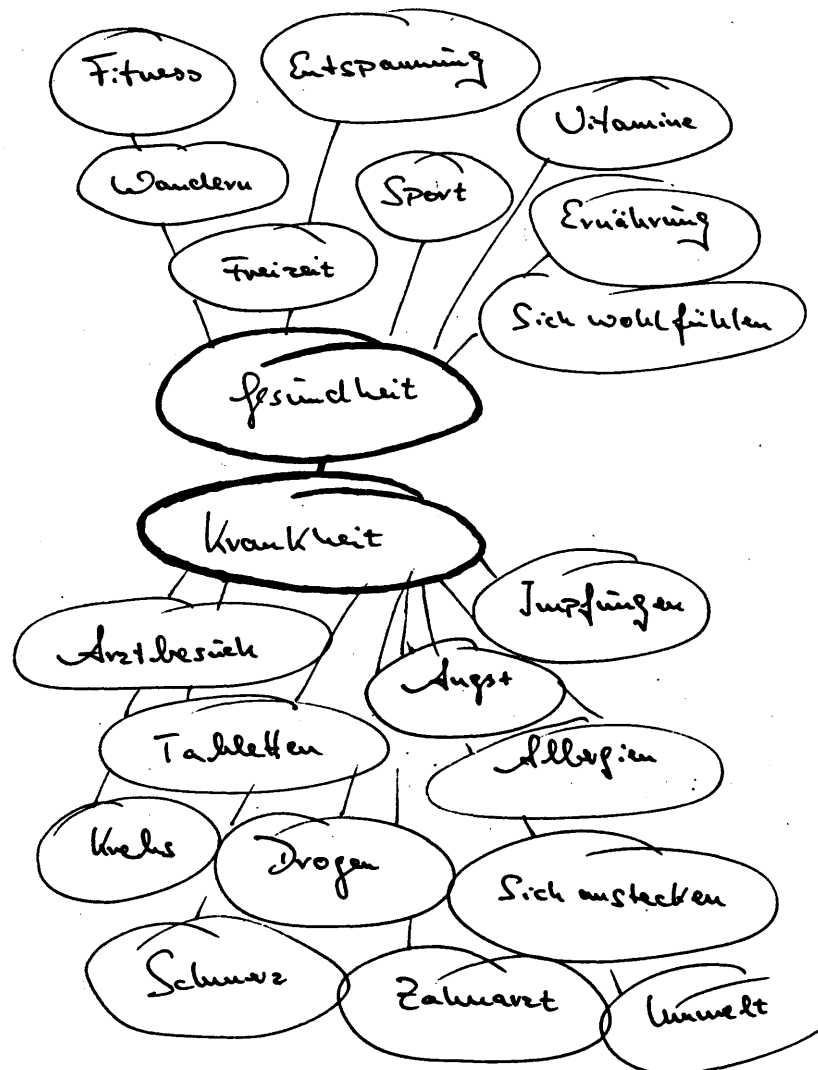 Fitness
Entspannung
Vitamine
Wandern
Sport
Ernährung
Freizeit
Sich wohl fühlen
Gesundheit
Krankheit
Impfungen
Arztbesuch
Angst
Tabletten
Allergien
Krebs
Drogen
Sich anstecken
Schmerz
Zahnarzt
Umwelt